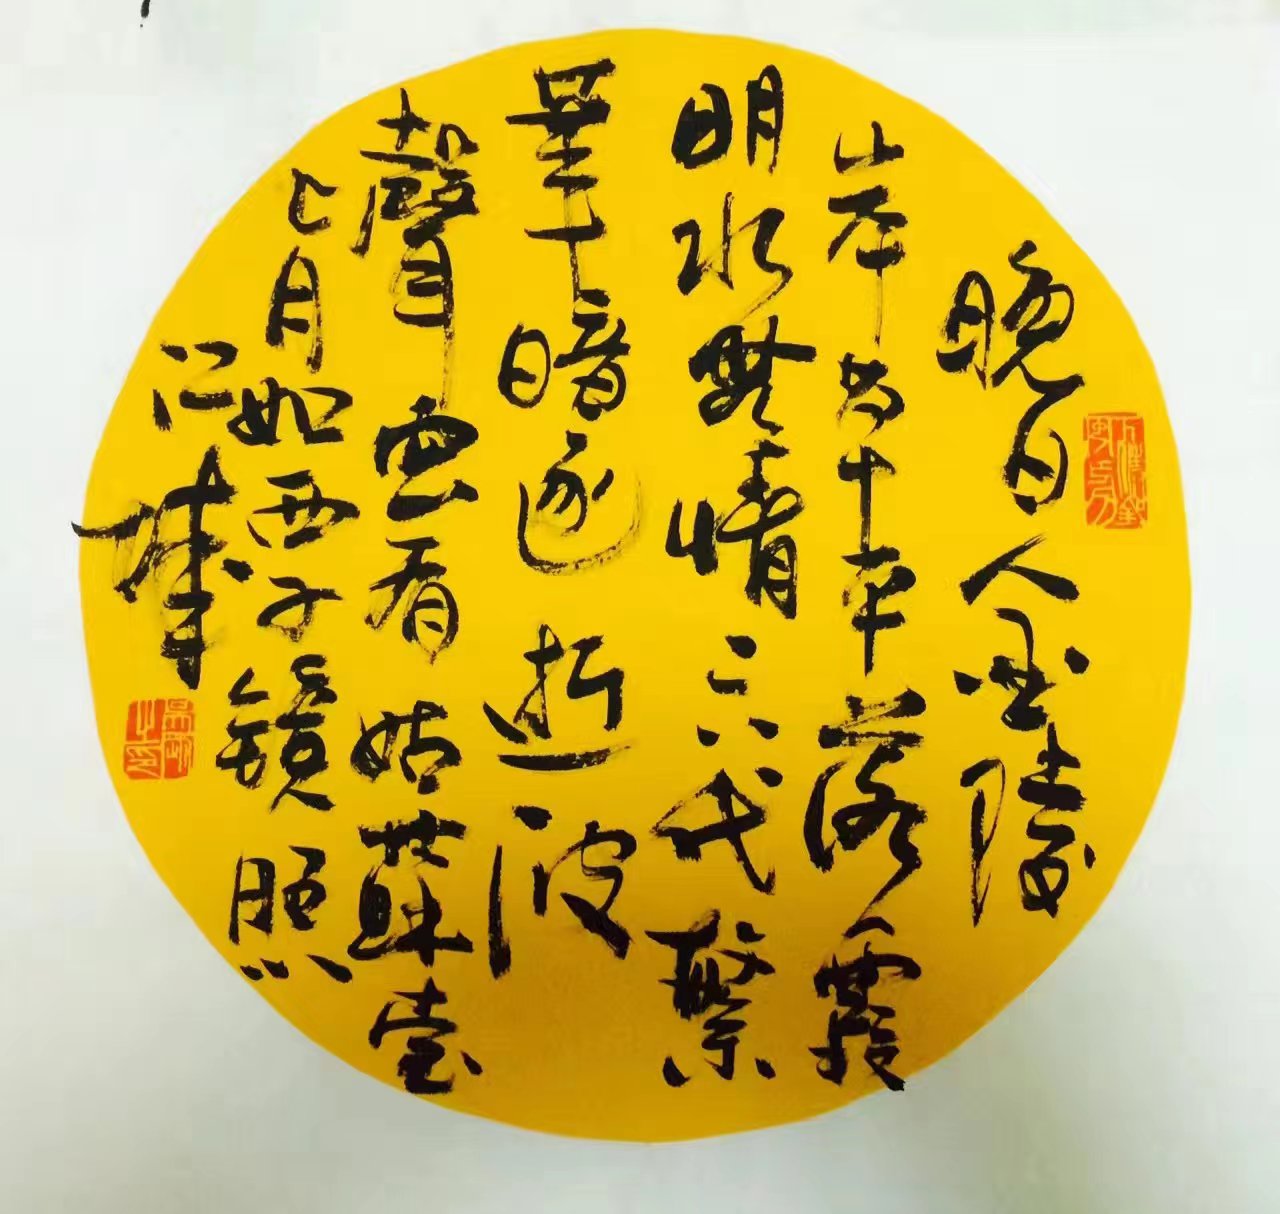 晚日金陵
岸草平落霞
明水無情六代繁
華暗逐逝波
聲空有姑蘇臺
上月如西子鏡照
江城